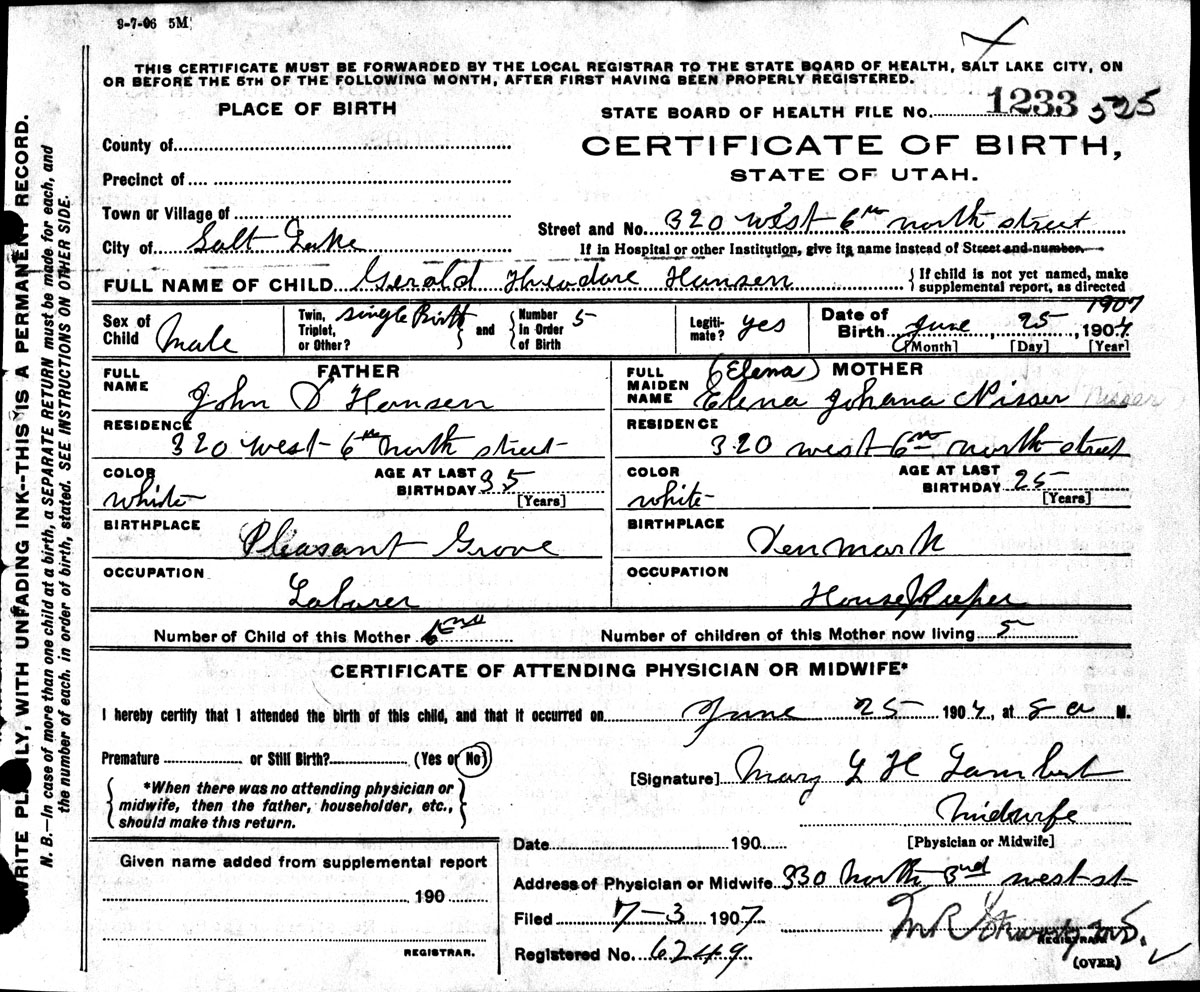 9-7-06 5M
THIS CERTIFICATE MUST BE FORWARDED BY THE LOCAL REGISTRAR TO THE STATE BOARD OF HEALTH, SALT LAKE CITY, ON
OR BEFORE THE 5TH OF THE FOLLOWING MONTH, AFTER FIRST HAVING BEEN PROPERLY REGISTERED.
PLACE OF BIRTH
STATE BOARD OF HEALTH FILE No. 1233 525
County of
CERTIFICATE OF BIRTH,
Precinct of
STATE OF UTAH.
Town or Village of
Street and No. 320 west 6th north street
City of Salt Lake
If in Hospital or other Institution, give its name instead of Street and number.
FULL NAME OF CHILD Gerald Theodore Hansen
{If child is not yet named, make
supplemental report, as directed
Sex of Child Male
Twin, Triplet, or Other? single Birth } and { Number in Order of Birth 5
Legiti-mate? yes
Date of Birth June 25, 1907 1907
[Month] [Day] [Year]
FULL NAME FATHER
John D Hansen
FULL MAIDEN NAME (Elena) MOTHER
Elena Johana Nisser Nisser
RESIDENCE 320 west 6th north street
RESIDENCE 320 west 6th north street
COLOR white AGE AT LAST BIRTHDAY 35 [Years]
COLOR white AGE AT LAST BIRTHDAY 25 [Years]
BIRTHPLACE Pleasant Grove
BIRTHPLACE Denmark
OCCUPATION Laborer
OCCUPATION House Keeper
Number of Child of this Mother 6
Number of children of this Mother now living 5
CERTIFICATE OF ATTENDING PHYSICIAN OR MIDWIFE*
I hereby certify that I attended the birth of this child, and that it occurred on June 25 1907, at 8 a M.
Premature or Still Birth? (Yes or No)
[Signature] Mary L H Lambert
{*When there was no attending physician or
midwife, then the father, householder, etc.,
should make this return.}
Midwife
[Physician or Midwife]
Date 190
Given name added from supplemental report
190
REGISTRAR.
Address of Physician or Midwife 330 North 3rd west st
Filed 7-3 1907
REGISTRAR
Registered No. 6249
(OVER)
WRITE PLAINLY, WITH UNFADING INK--THIS IS A PERMANENT RECORD.
N. B.—In case of more than one child at a birth, a SEPARATE RETURN must be made for each, and
the number of each, in order of birth, stated. SEE INSTRUCTIONS ON OTHER SIDE.